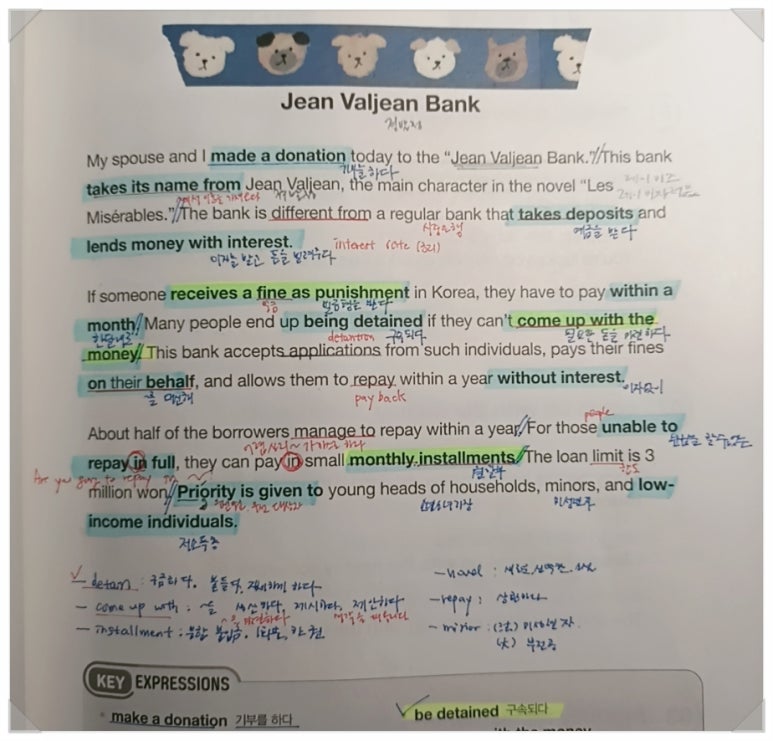 Jean Valjean Bank
장발장
My spouse and I made a donation today to the “Jean Valjean Bank.” This bank
기부를 하다
takes its name from Jean Valjean, the main character in the novel “Les
Misérables.” The bank is different from a regular bank that takes deposits and
시중은행
예금을 받다
lends money with interest.
이자를 받고 돈을 빌려주다
interest rate (금리)
If someone receives a fine as punishment in Korea, they have to pay within a
벌금
벌금형을 받다
month. Many people end up being detained if they can't come up with the
한달내로
detention
구속되다
필요한 돈을 마련하다
money. This bank accepts applications from such individuals, pays their fines
on their behalf, and allows them to repay within a year without interest.
을 대신해
pay back
이자없이
About half of the borrowers manage to repay within a year. For those unable to
people
repay in full, they can pay in small monthly installments. The loan limit is 3
Are you going to repay in
할부
한도
million won. Priority is given to young heads of households, minors, and low-
미성년자
income individuals.
저소득층
- detain : 구금하다. 붙들다. 지체하게 하다
- novel :
- come up with : ~을 생산하다, 제시하다, 제안하다
- repay : 상환하다
- installment :
- minor :
KEY EXPRESSIONS
make a donation 기부를 하다
be detained 구속되다